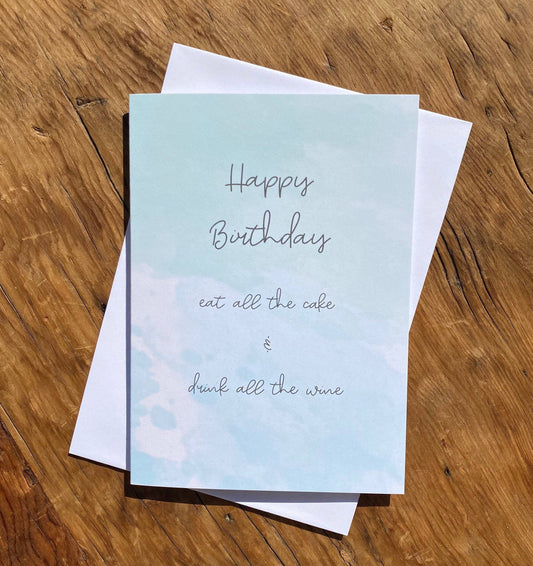 Happy
Birthday
eat all the cake
&
drink all the wine